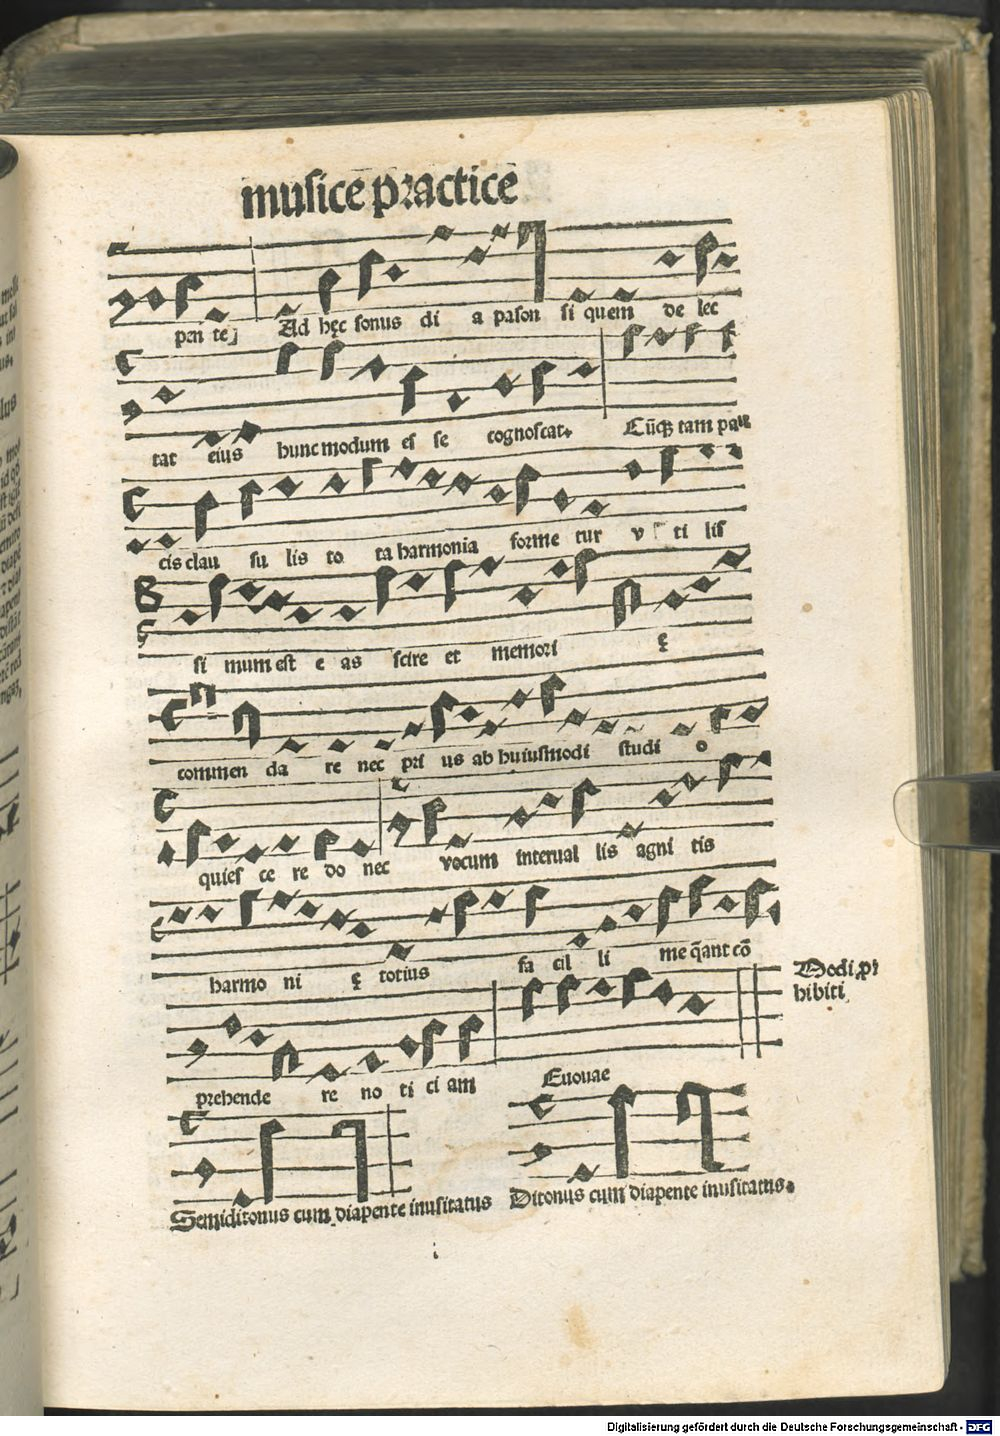 musicę practicę
pen te Ad hęc sonus di a pason si quem de lec
tat eius hunc modum es se cognoscat. Cũqȝ tam pau
cis clau su lis to ta harmonia forme tur v ti lis
si mum est e as scire et memori ę
commen da re nec pri us ab huiusmodi studi o
quies ce re do nec vocum interual lis agni tis
harmo ni ę totius fa cil li me q̄ant cō
Modi ꝓ
hibiti
prehende re no ti ci am
Euouae
Semiditonus cum diapente inusitatus Ditonus cum diapente inusitatus.
i
Digitalisierung gefördert durch die Deutsche Forschungsgemeinschaft - DFG